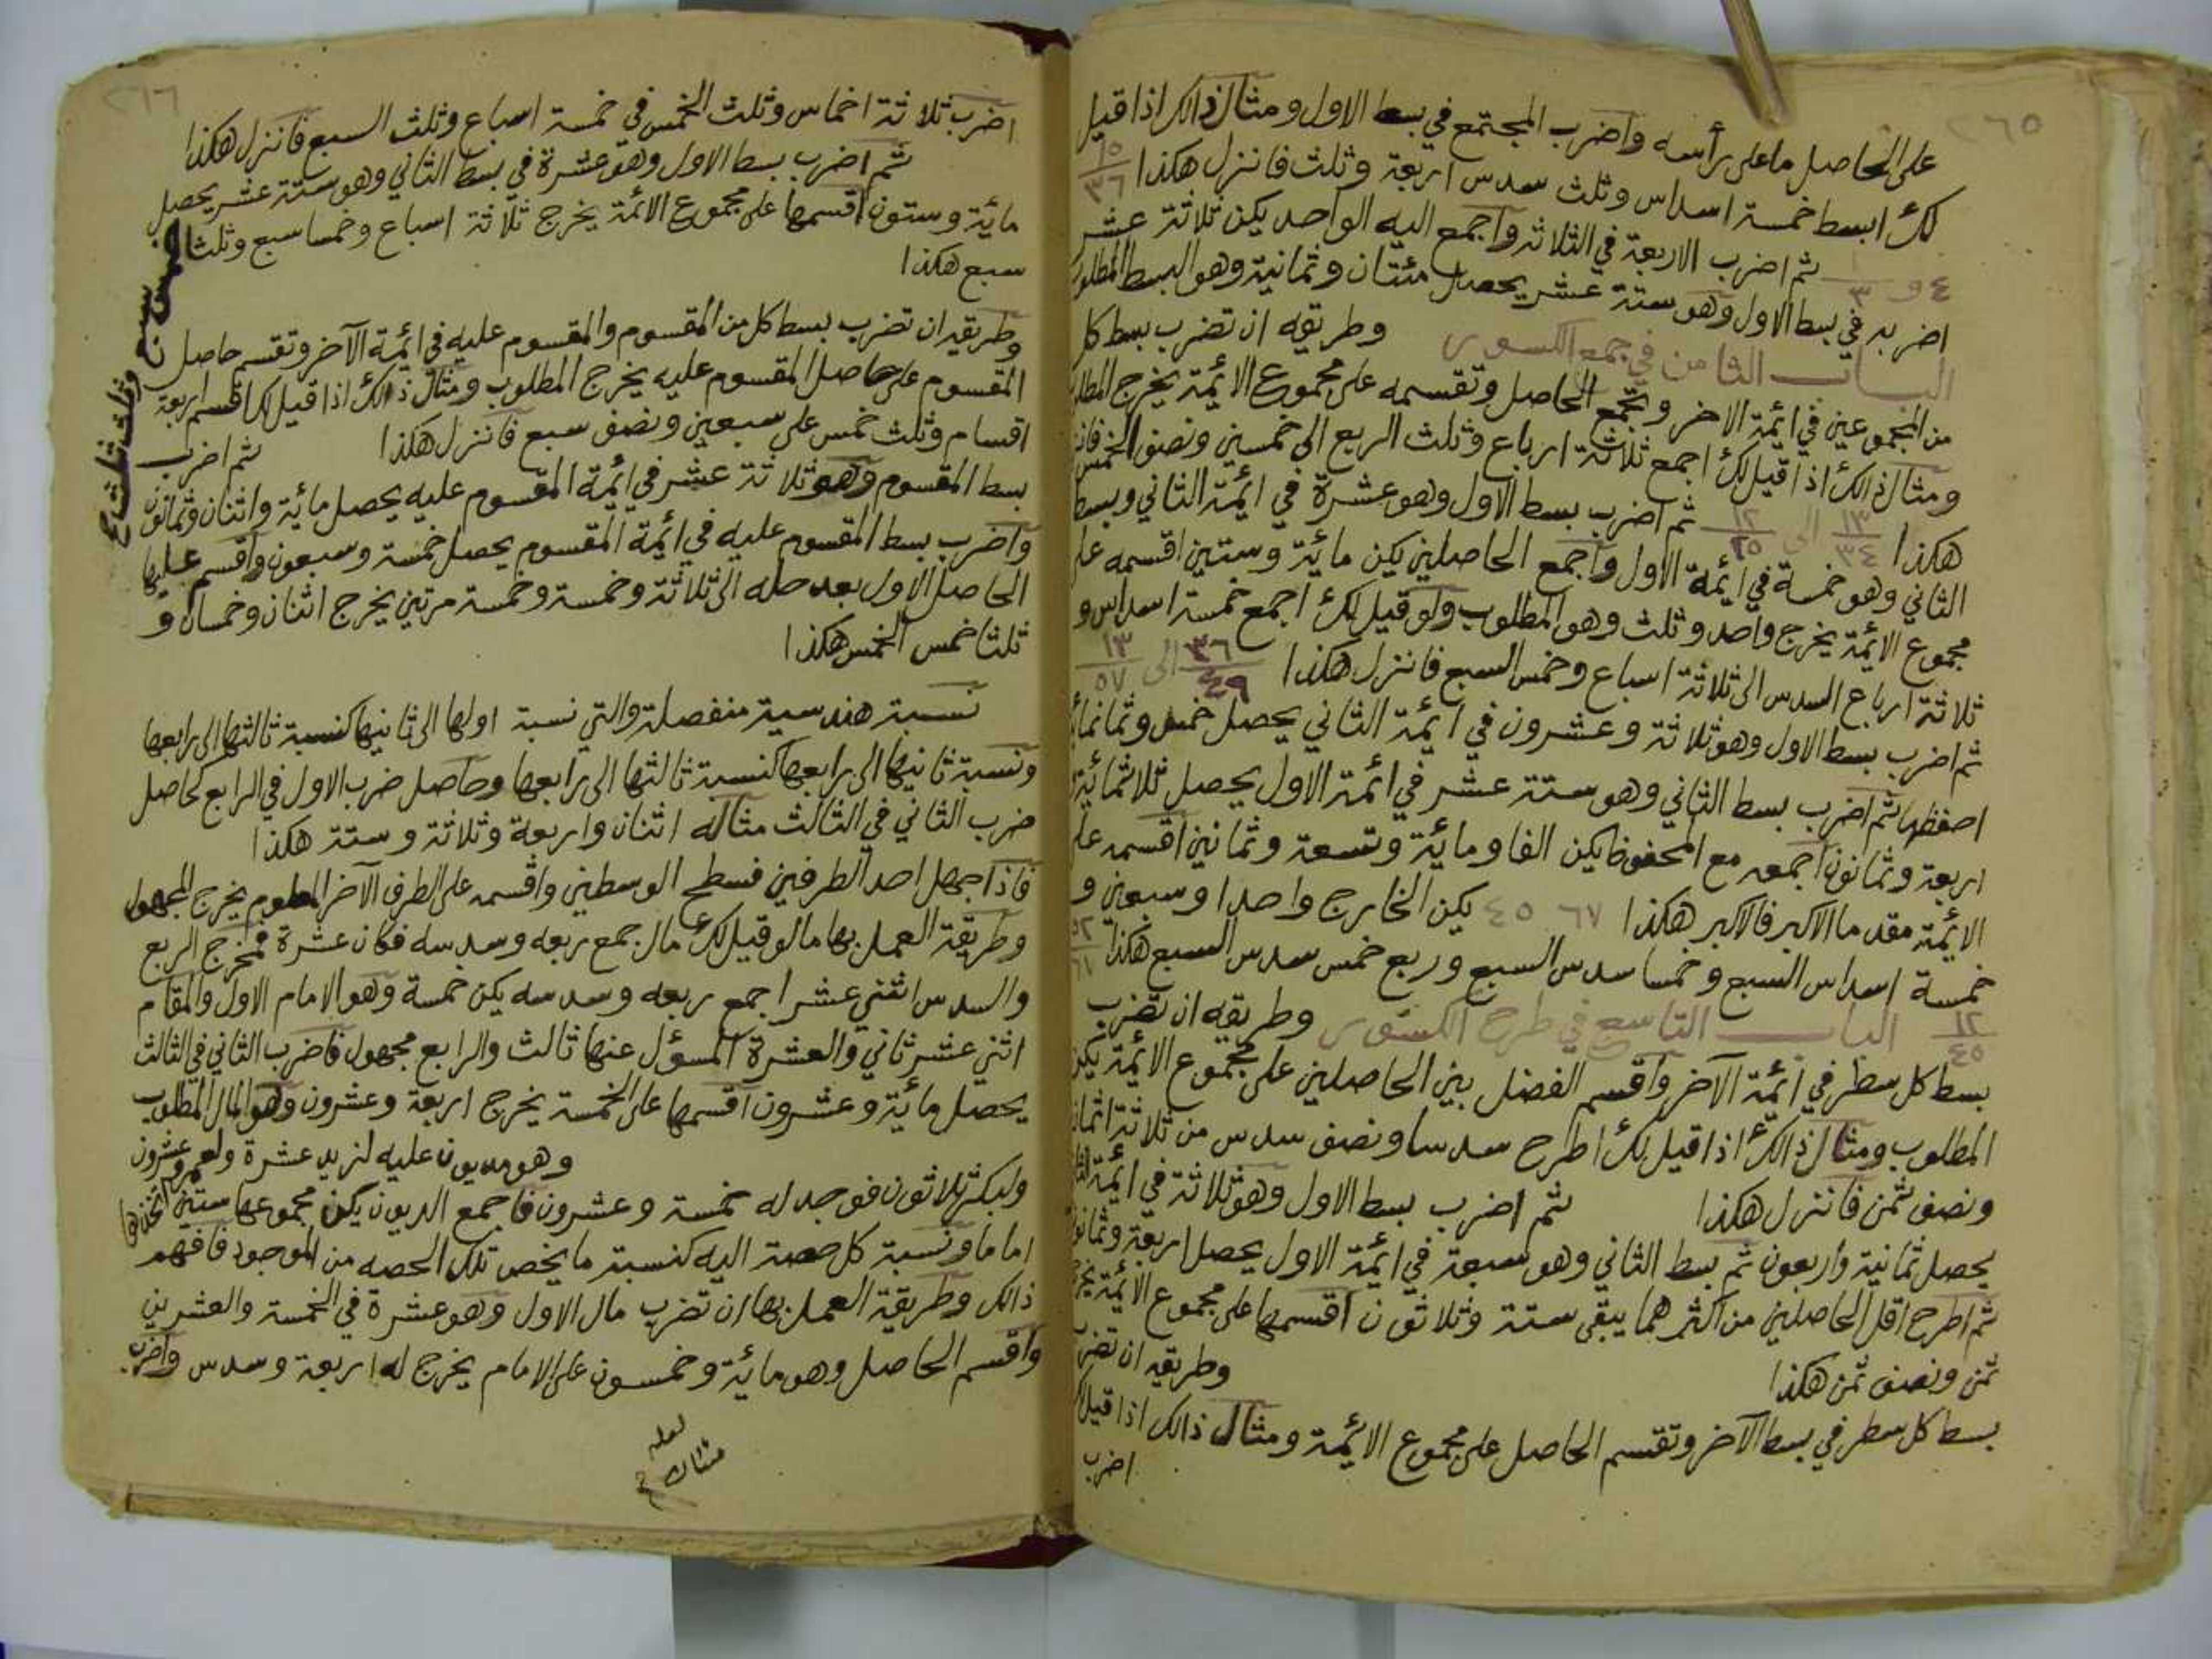 ٢٦٥
على الحاصل ما على رأسه واضرب المجتمع في بسط الاول ومثال ذالك اذا قيل
لك ابسط خمسة اسداس وثلث سدس اربعة وثلث فانزل هكذا ١٥/٣٦
٤ و ١/٣ ثم اضرب الاربعة في الثلاثة واجمع اليه الواحد يكن ثلاثة عشر
اضربه في بسط الاول وهو ستة عشر يحصل مئتان وثمانية وهو البسط المطلوب
الباب الثامن في جمع الكسور وطريقه ان تضرب بسط كل
من المجموعين في ائمة الاخر وتجمع الحاصل وتقسمه على مجموع الائمة يخرج المطلوب
ومثال ذالك اذا قيل لك اجمع ثلاثة ارباع وثلث الربع الى خمسين ونصف الخمس فانزل
هكذا ١٣/٣٤ الى ١٢/٢٥ ثم اضرب بسط الاول وهو عشرة في ائمة الثاني وبسط
الثاني وهو خمسة في ائمة الاول واجمع الحاصلين يكن مائة وستين اقسمه على
مجموع الائمة يخرج واحد وثلث وهو المطلوب ولو قيل لك اجمع خمسة اسداس و
ثلاثة ارباع السدس الى ثلاثة اسباع وخمس السبع فانزل هكذا ٣٦/٤٩ الى ١٣/٥٧
ثم اضرب بسط الاول وهو ثلاثة وعشرون في ائمة الثاني يحصل خمس وثمانمائة
احفظها ثم اضرب بسط الثاني وهو ستة عشر في ائمة الاول يحصل ثلاثمائة
اربعة وثمانون اجمعه مع المحفوظ يكن الفا ومائة وتسعة وثمانين اقسمه على
الائمة مقدما الاكبر فالاكبر هكذا ٦٧ ٤٥ يكن الخارج واحدا وسبعين و
خمسة اسداس السبع وخمسا سدس السبع وربع خمس سدس السبع هكذا ٥٢/٦٧
١٢/٤٥ الباب التاسع في طرح الكسور وطريقه ان تضرب
بسط كل سطر في ائمة الآخر واقسم الفضل بين الحاصلين على مجموع الائمة يكن
المطلوب ومثال ذالك اذا قيل لك اطرح سدسا ونصف سدس من ثلاثة اثمان
ونصف ثمن فانزل هكذا ثم اضرب بسط الاول وهو ثلاثة في ائمة الثاني
يحصل ثمانية واربعون ثم بسط الثاني وهو سبعة في ائمة الاول يحصل اربعة وثمانون
ثم اطرح اقل الحاصلين من اكثرهما يبقى ستة وثلاثون اقسمها على مجموع الائمة يخرج
ثمن ونصف ثمن هكذا وطريقه ان تضرب
بسط كل سطر في بسط الآخر وتقسم الحاصل على مجموع الائمة ومثال ذالك اذا قيل لك
اضرب
٢٦٦
اضرب ثلاثة اخماس وثلث الخمس في خمسة اسباع وثلث السبع فانزل هكذا
ثم اضرب بسط الاول وهو عشرة في بسط الثاني وهو ستة عشر يحصل
مائة وستون اقسمها على مجموع الائمة يخرج ثلاثة اسباع وخمسا سبع وثلثا خمس
سبع هكذا
سبع وثلث ثلث
وطريقه ان تضرب بسط كل من المقسوم والمقسوم عليه في ائمة الآخر وتقسم حاصل
المقسوم على حاصل المقسوم عليه يخرج المطلوب ومثال ذالك اذا قيل لك اقسم اربعة
اقسام وثلث خمس على سبعين ونصف سبع فانزل هكذا ثم اضرب
بسط المقسوم وهو ثلاثة عشر في ائمة المقسوم عليه يحصل مائة واثنان وثمانون
واضرب بسط المقسوم عليه في ائمة المقسوم يحصل خمسة وسبعون واقسم عليها
الحاصل الاول بعد حله الى ثلاثة وخمسة وخمسة مرتين يخرج اثنان وخمسان و
ثلثا خمس الخمس هكذا
نسبة هندسية منفصلة والتي نسبة اولها الى ثانيها كنسبة ثالثها الى رابعها
ونسبة ثانيها الى رابعها كنسبة ثالثها الى رابعها وحاصل ضرب الاول في الرابع كحاصل
ضرب الثاني في الثالث مثاله اثنان واربعة وثلاثة وستة هكذا
فاذا جهل احد الطرفين فسطح الوسطين واقسمه على الطرف الآخر المعلوم يخرج المجهول
وطريقة العمل بها ما لو قيل لك مال جمع ربعه وسدسه فكان عشرة فمخرج الربع
والسدس اثني عشر اجمع ربعه وسدسه يكن خمسة وهو الامام الاول والمقام
اثني عشر ثاني والعشرة المسؤل عنها ثالث والرابع مجهول فاضرب الثاني في الثالث
يحصل مائة وعشرون اقسمها على الخمسة يخرج اربعة وعشرون وهو المال المطلوب
وهو مديون عليه لزيد عشرة ولعمرو عشرون
ولبكر ثلاثون فوجد له خمسة وعشرون فاجمع الديون يكن مجموعها ستين اتخذها
اماما ونسبة كل حصة اليه كنسبة ما يخص تلك الحصه من الموجود فافهم
ذالك وطريقة العمل بها ان تضرب مال الاول وهو عشرة في الخمسة والعشرين
واقسم الحاصل وهو مائة وخمسون على الامام يخرج له اربعة وسدس واضرب
لعله
مئتان